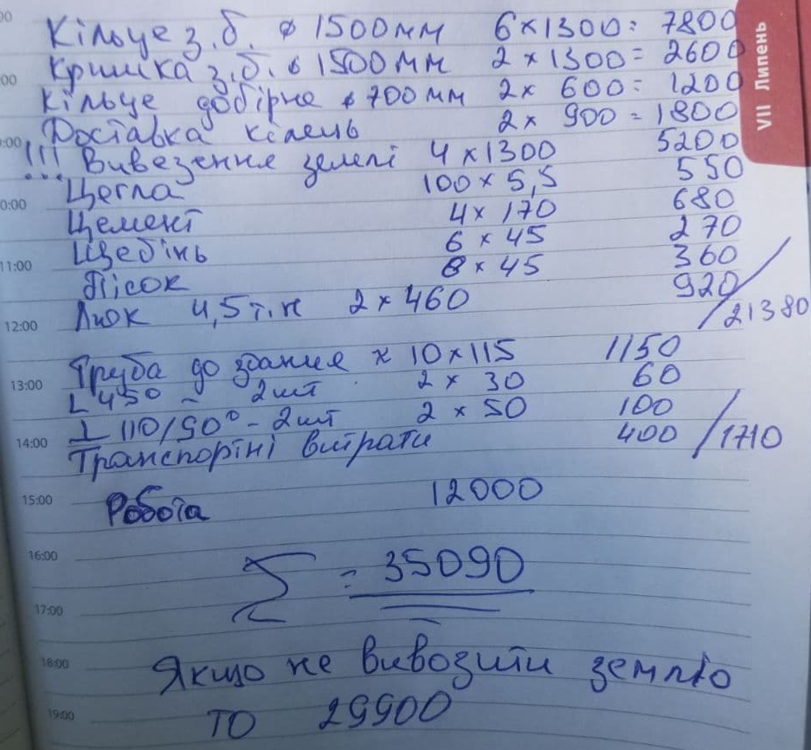 Кільце з.б. ⌀ 1500мм 6×1300= 7800
Кришка з.б. ⌀ 1500мм 2×1300= 2600
Кільце добірне ⌀ 700мм 2× 600= 1200
Доставка кілець 2× 900 = 1800
!!! Вивезення землі 4×1300 5200
Цегла 100×5,5 550
Цемент 4×170 680
Щебінь 6×45 270
Пісок 8×45 360
Люк 4,5т.н 2×460 920 / 21380
Труба до здания 10×115 1150
L 45° - 2шт 2× 30 60
⊥ 110/90° - 2шт 2× 50 100
Транспортні витрати 400 / 1710
Робота 12000
Σ = 35090
Якщо не вивозити землю
то 29900
VII Липень
10:00
11:00
12:00
13:00
14:00
15:00
16:00
17:00
18:00
19:00